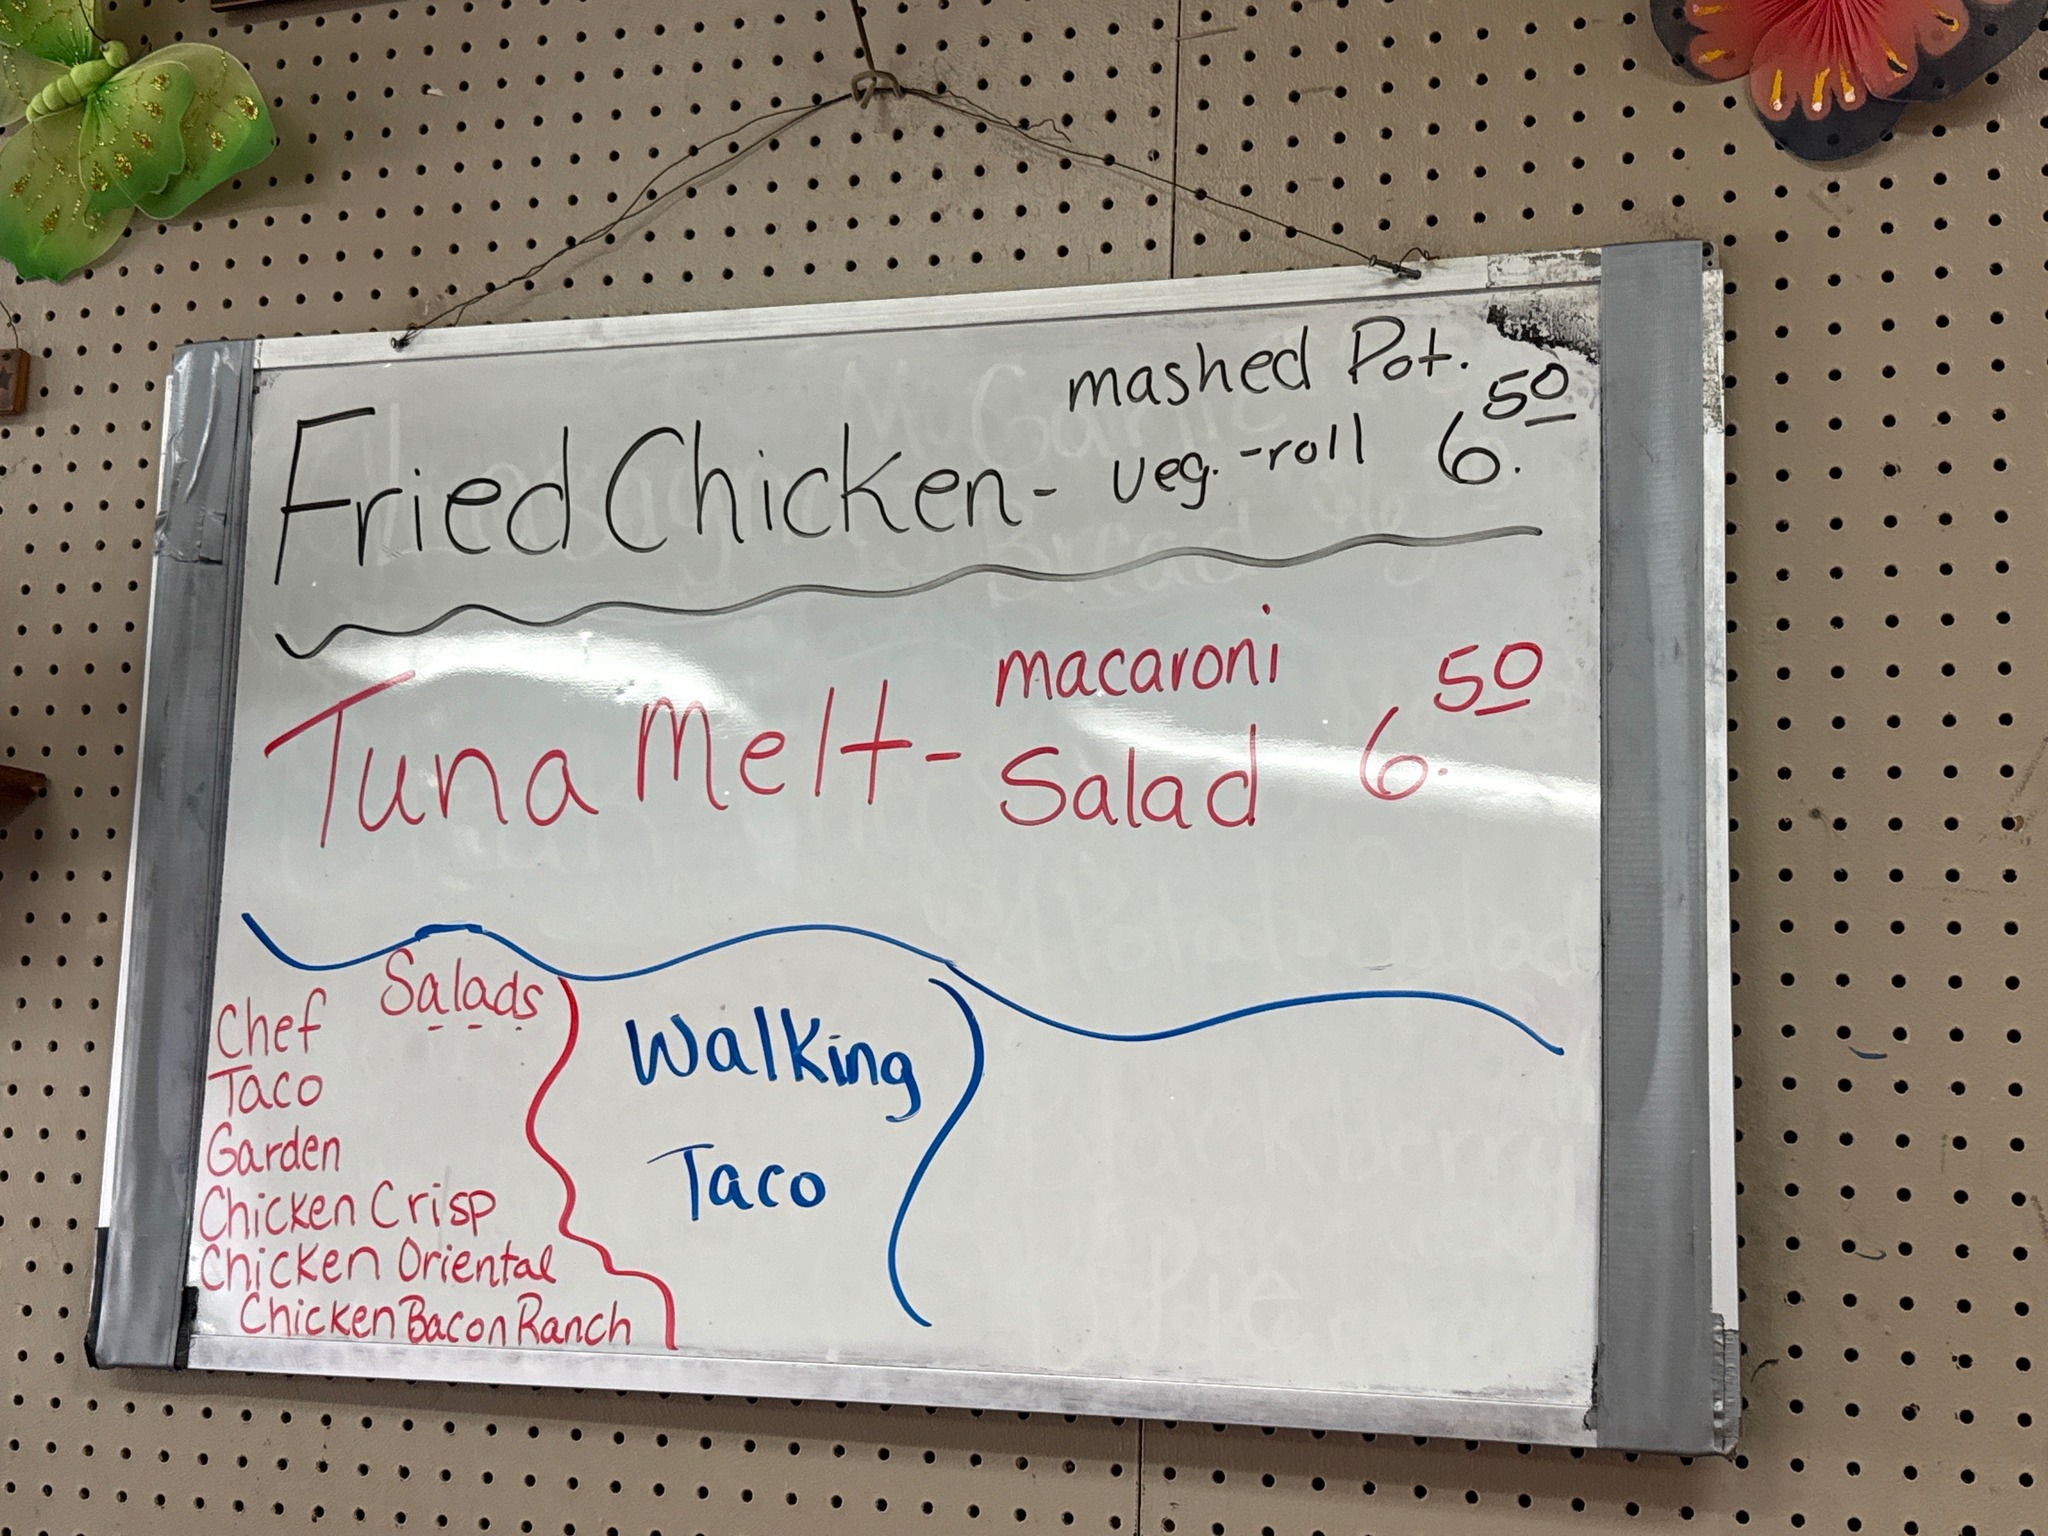 mashed Pot.
Fried Chicken - veg. - roll 6.50
Tuna Melt - macaroni Salad 6.50
Salads
Chef
Taco
Garden
Chicken Crisp
Chicken Oriental
Chicken Bacon Ranch
Walking
Taco